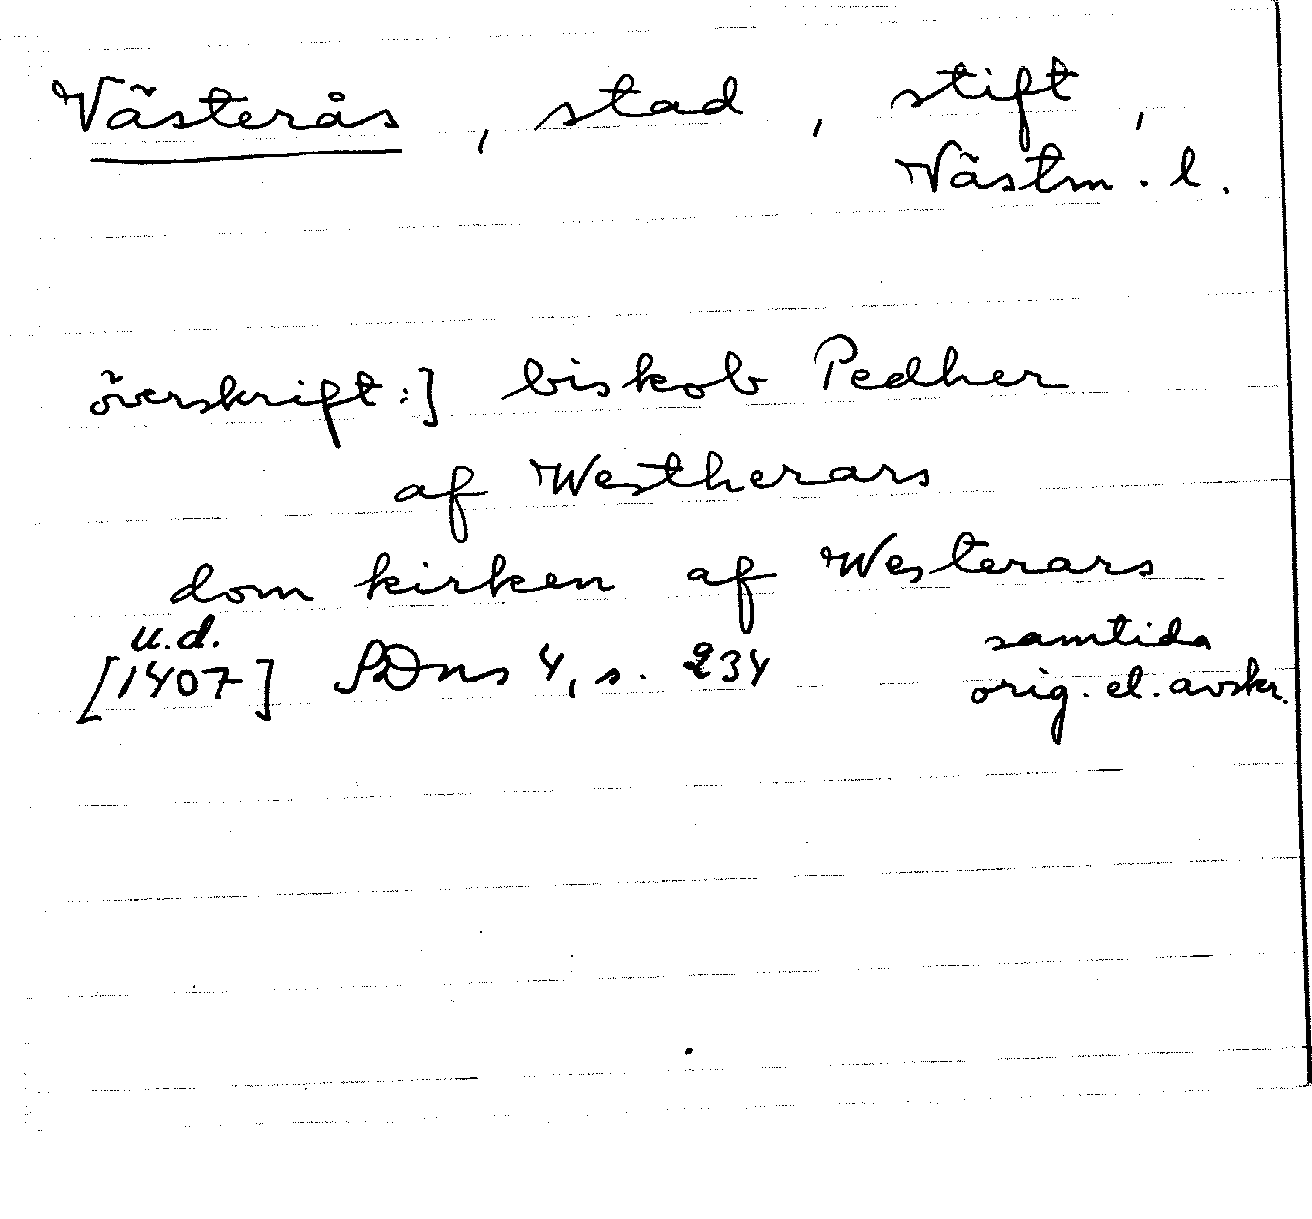 Västerås, stad, stift,
Västm. l.
överskrift:] biskob Pedher
af Westherars
dom kirken af Westerars
u.d.
[1407] SDns 4, s. 234
samtida
orig. el. avskr.